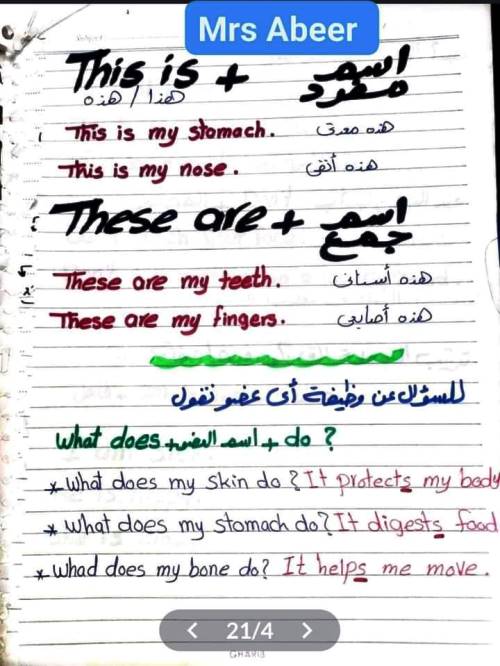 Mrs Abeer
This is + اسم مفرد
هذا / هذه
This is my stomach. هذه معدتى
This is my nose. هذه أنفى
These are + اسم جمع
These are my teeth. هذه أسنانى
These are my fingers. هذه أصابعى
للسؤال عن وظيفة أى عضو نقول
What does + اسم العضو + do ?
* What does my skin do ? It protects my body
* What does my stomach do? It digests food
* Whad does my bone do? It helps me move.
< 21/4 >
GHARIB